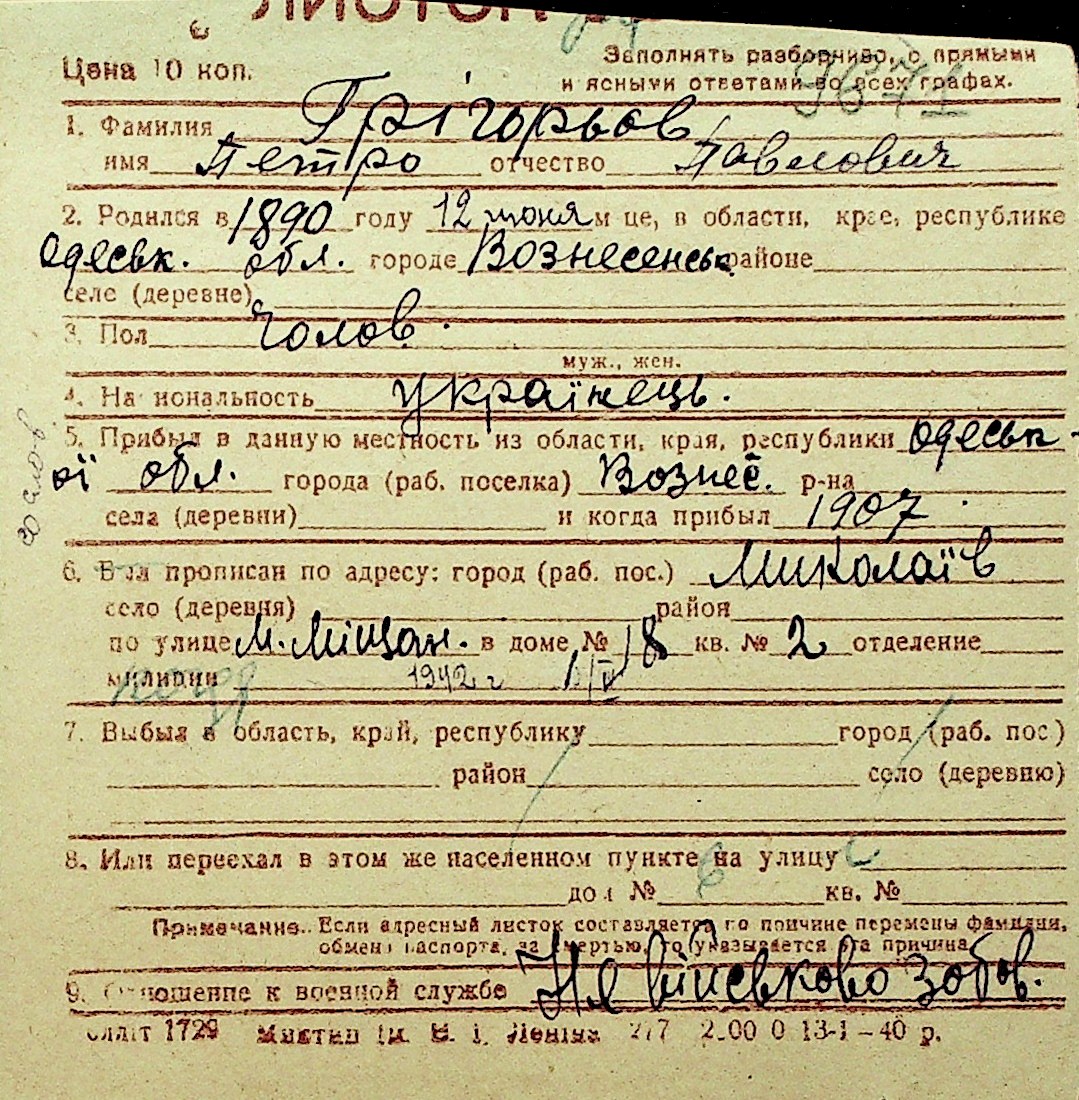 ЛИСТОК
Цена 10 коп.
Заполнять разборчиво, с прямыми
и ясными ответами во всех графах.
3671
1. Фамилия Грігорьов
имя Петро отчество Павлович
2. Родился в 1890 году 12 июня м це, в области, крае, республике
Одеськ. обл. городе Вознесенськ районе
селе (деревне)
3. Пол Чолов.
муж., жен.
4. На иональность Українець.
5. Прибыл в данную местность из области, края, республики Одеськ-
ої обл. города (раб. поселка) Вознес. р-на
села (деревни) и когда прибыл 1907
6. Был прописан по адресу: город (раб. пос.) Миколаїв
село (деревня) район
по улице М. Міщан. в доме № 18 кв. № 2 отделение
милиции 1942 г
7. Выбыл в область, край, республику город (раб. пос)
район село (деревню)
8. Или переехал в этом же населенном пункте на улицу
дом № кв. №
Примечание. Если адресный листок составляется по причине перемены фамилии,
обмена паспорта, за смертью, то указывается эта причина
9. Отношение к военной службе Не військово зобов.
Облліт 1729 Миктип ім. В. І. Леніна 277 2.00 0 13-1-40 р.